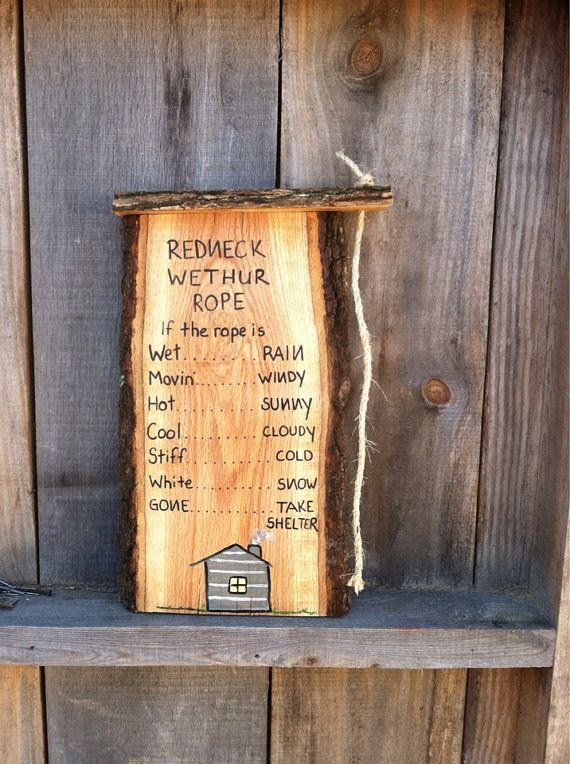 REDNECK
WETHUR
ROPE
If the rope is
Wet......... RAIN
Movin'......... WINDY
Hot........... SUNNY
Cool........... CLOUDY
Stiff........... COLD
White.......... SNOW
GONE.......... TAKE
SHELTER